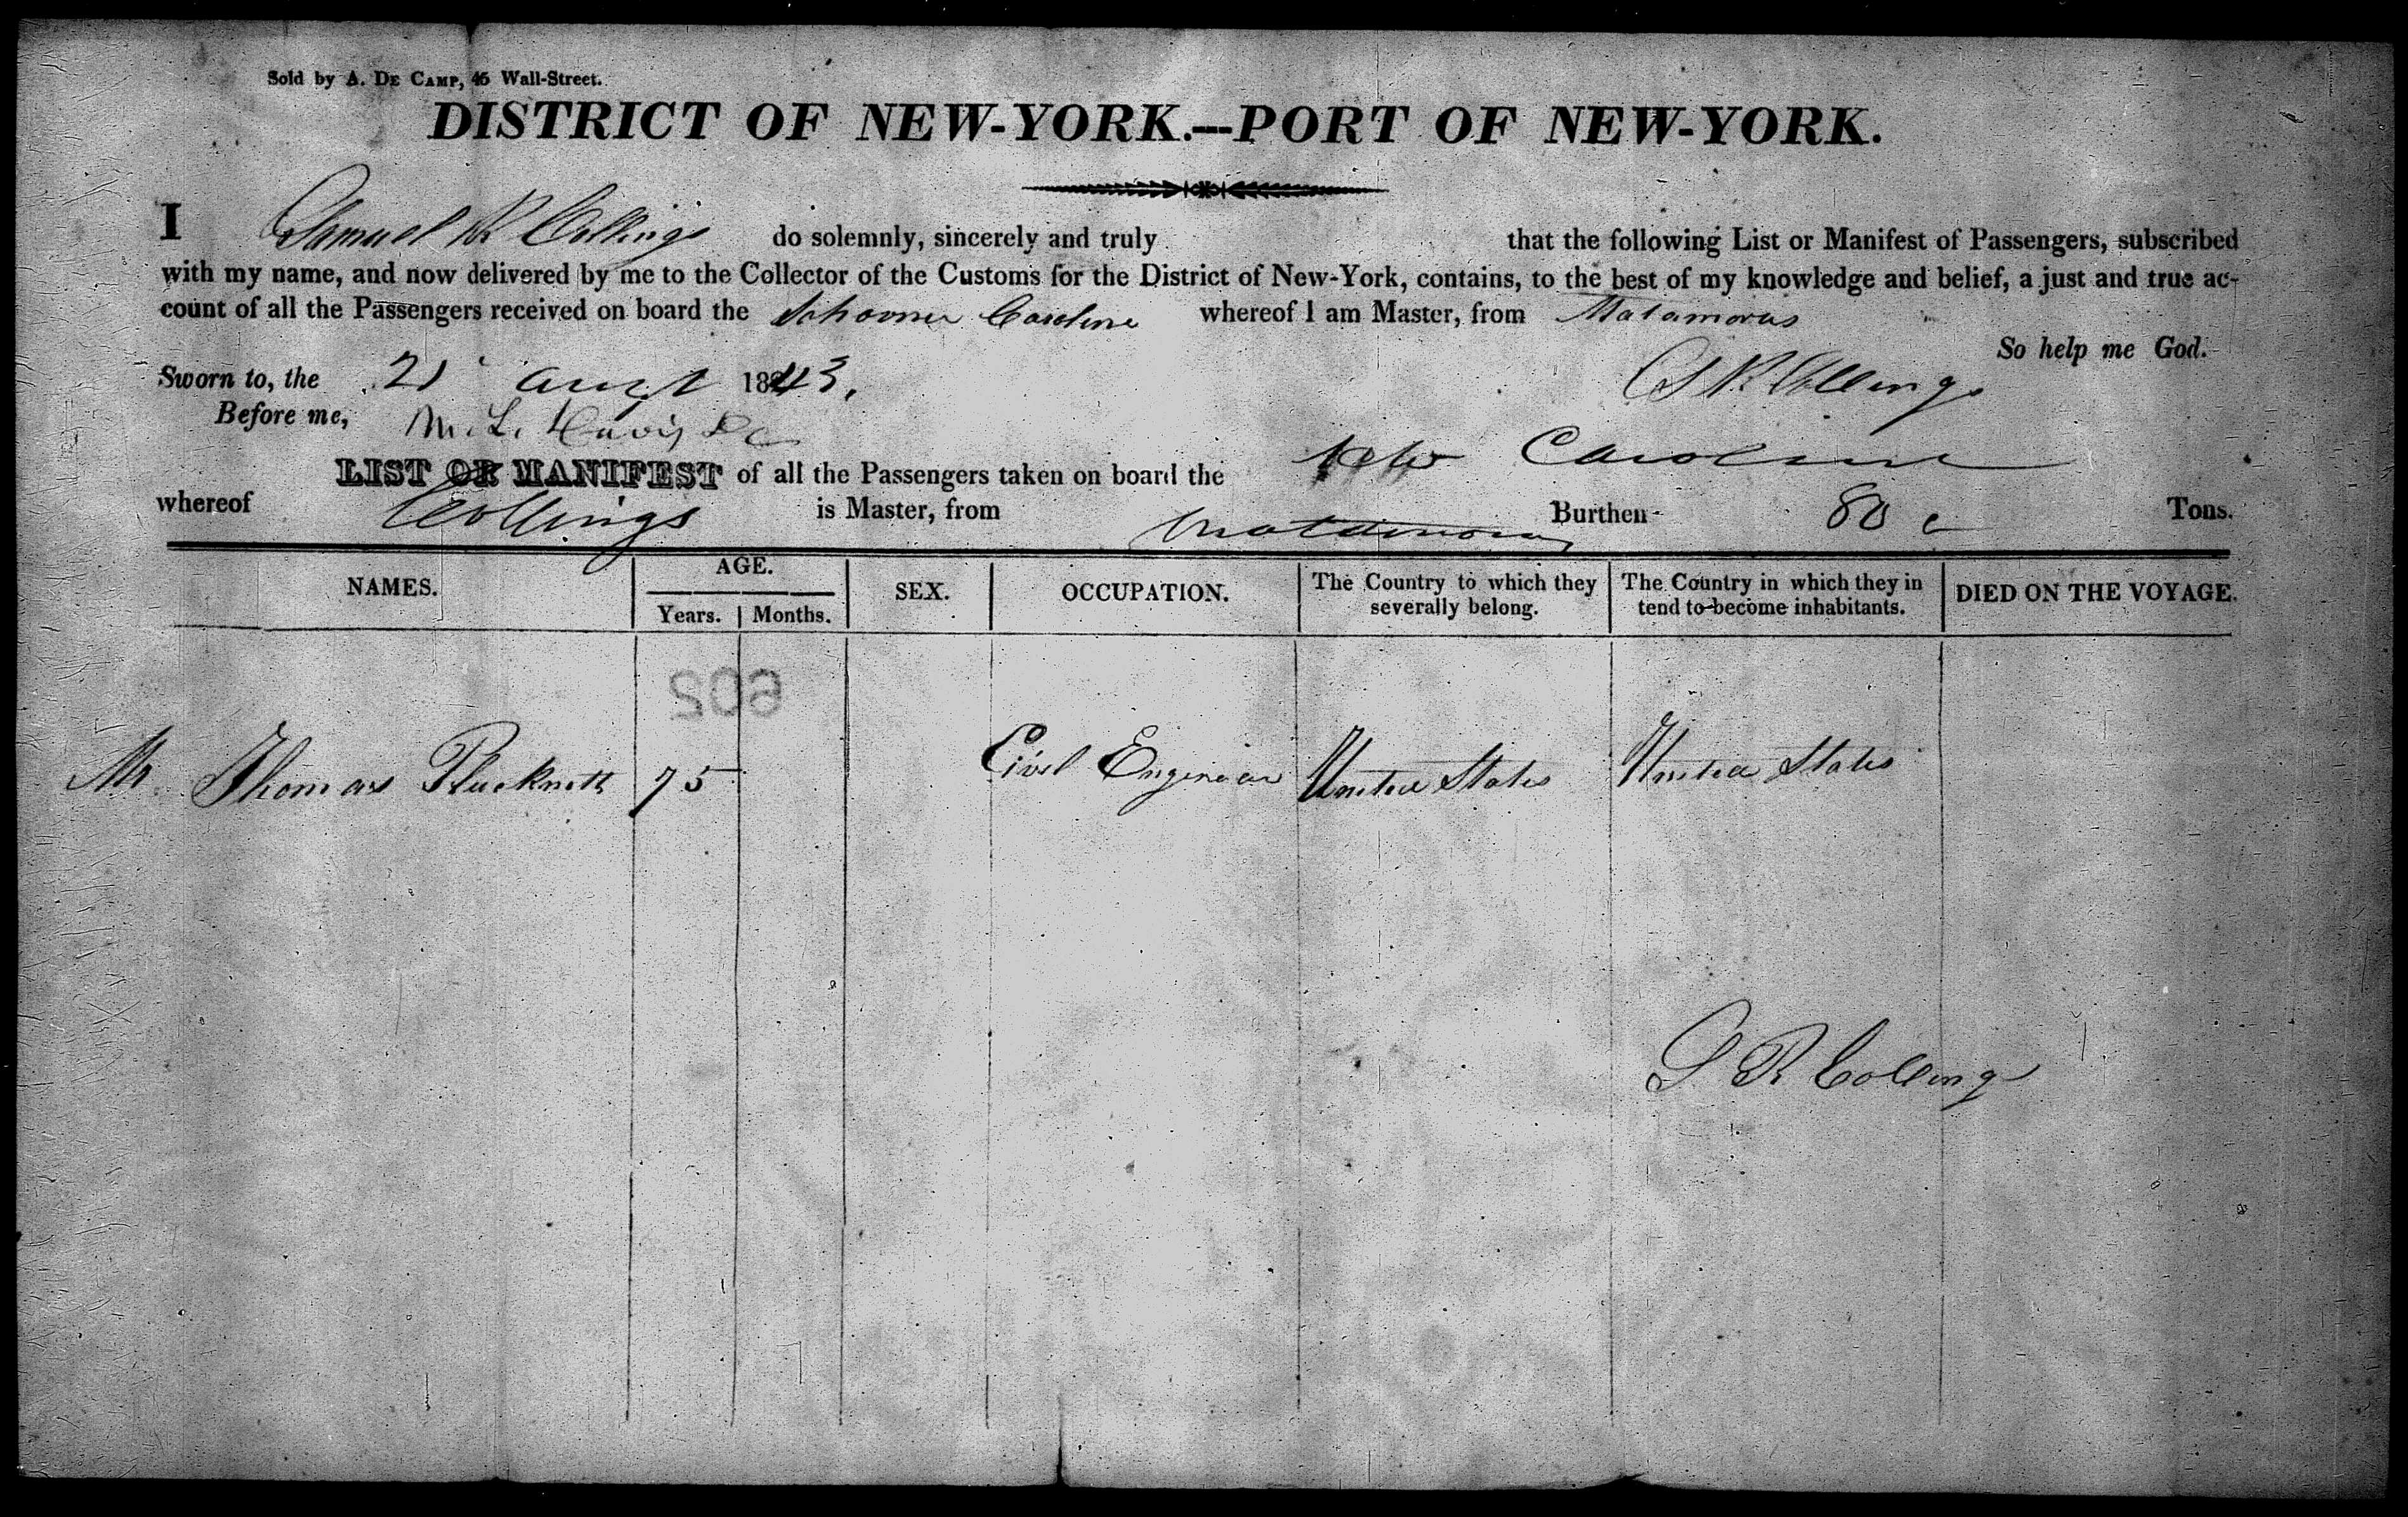 Sold by A. DE CAMP, 46 Wall-Street.
DISTRICT OF NEW-YORK.—PORT OF NEW-YORK.
I Samuel R Collings do solemnly, sincerely and truly that the following List or Manifest of Passengers, subscribed
with my name, and now delivered by me to the Collector of the Customs for the District of New-York, contains, to the best of my knowledge and belief, a just and true ac-
count of all the Passengers received on board the Schooner Caroline whereof I am Master, from Matamoras
So help me God.
Sworn to, the 21 Augt 1843. S R Collings
Before me, M. L. Davis
LIST OR MANIFEST of all the Passengers taken on board the Caroline
whereof Collings is Master, from Matamoras Burthen 80 Tons.
NAMES. AGE. Years. Months. SEX. OCCUPATION. The Country to which they severally belong. The Country in which they in tend to become inhabitants. DIED ON THE VOYAGE.
602
Mr Thomas Plucknett 75 Civil Engineer United States United States
S R Collings